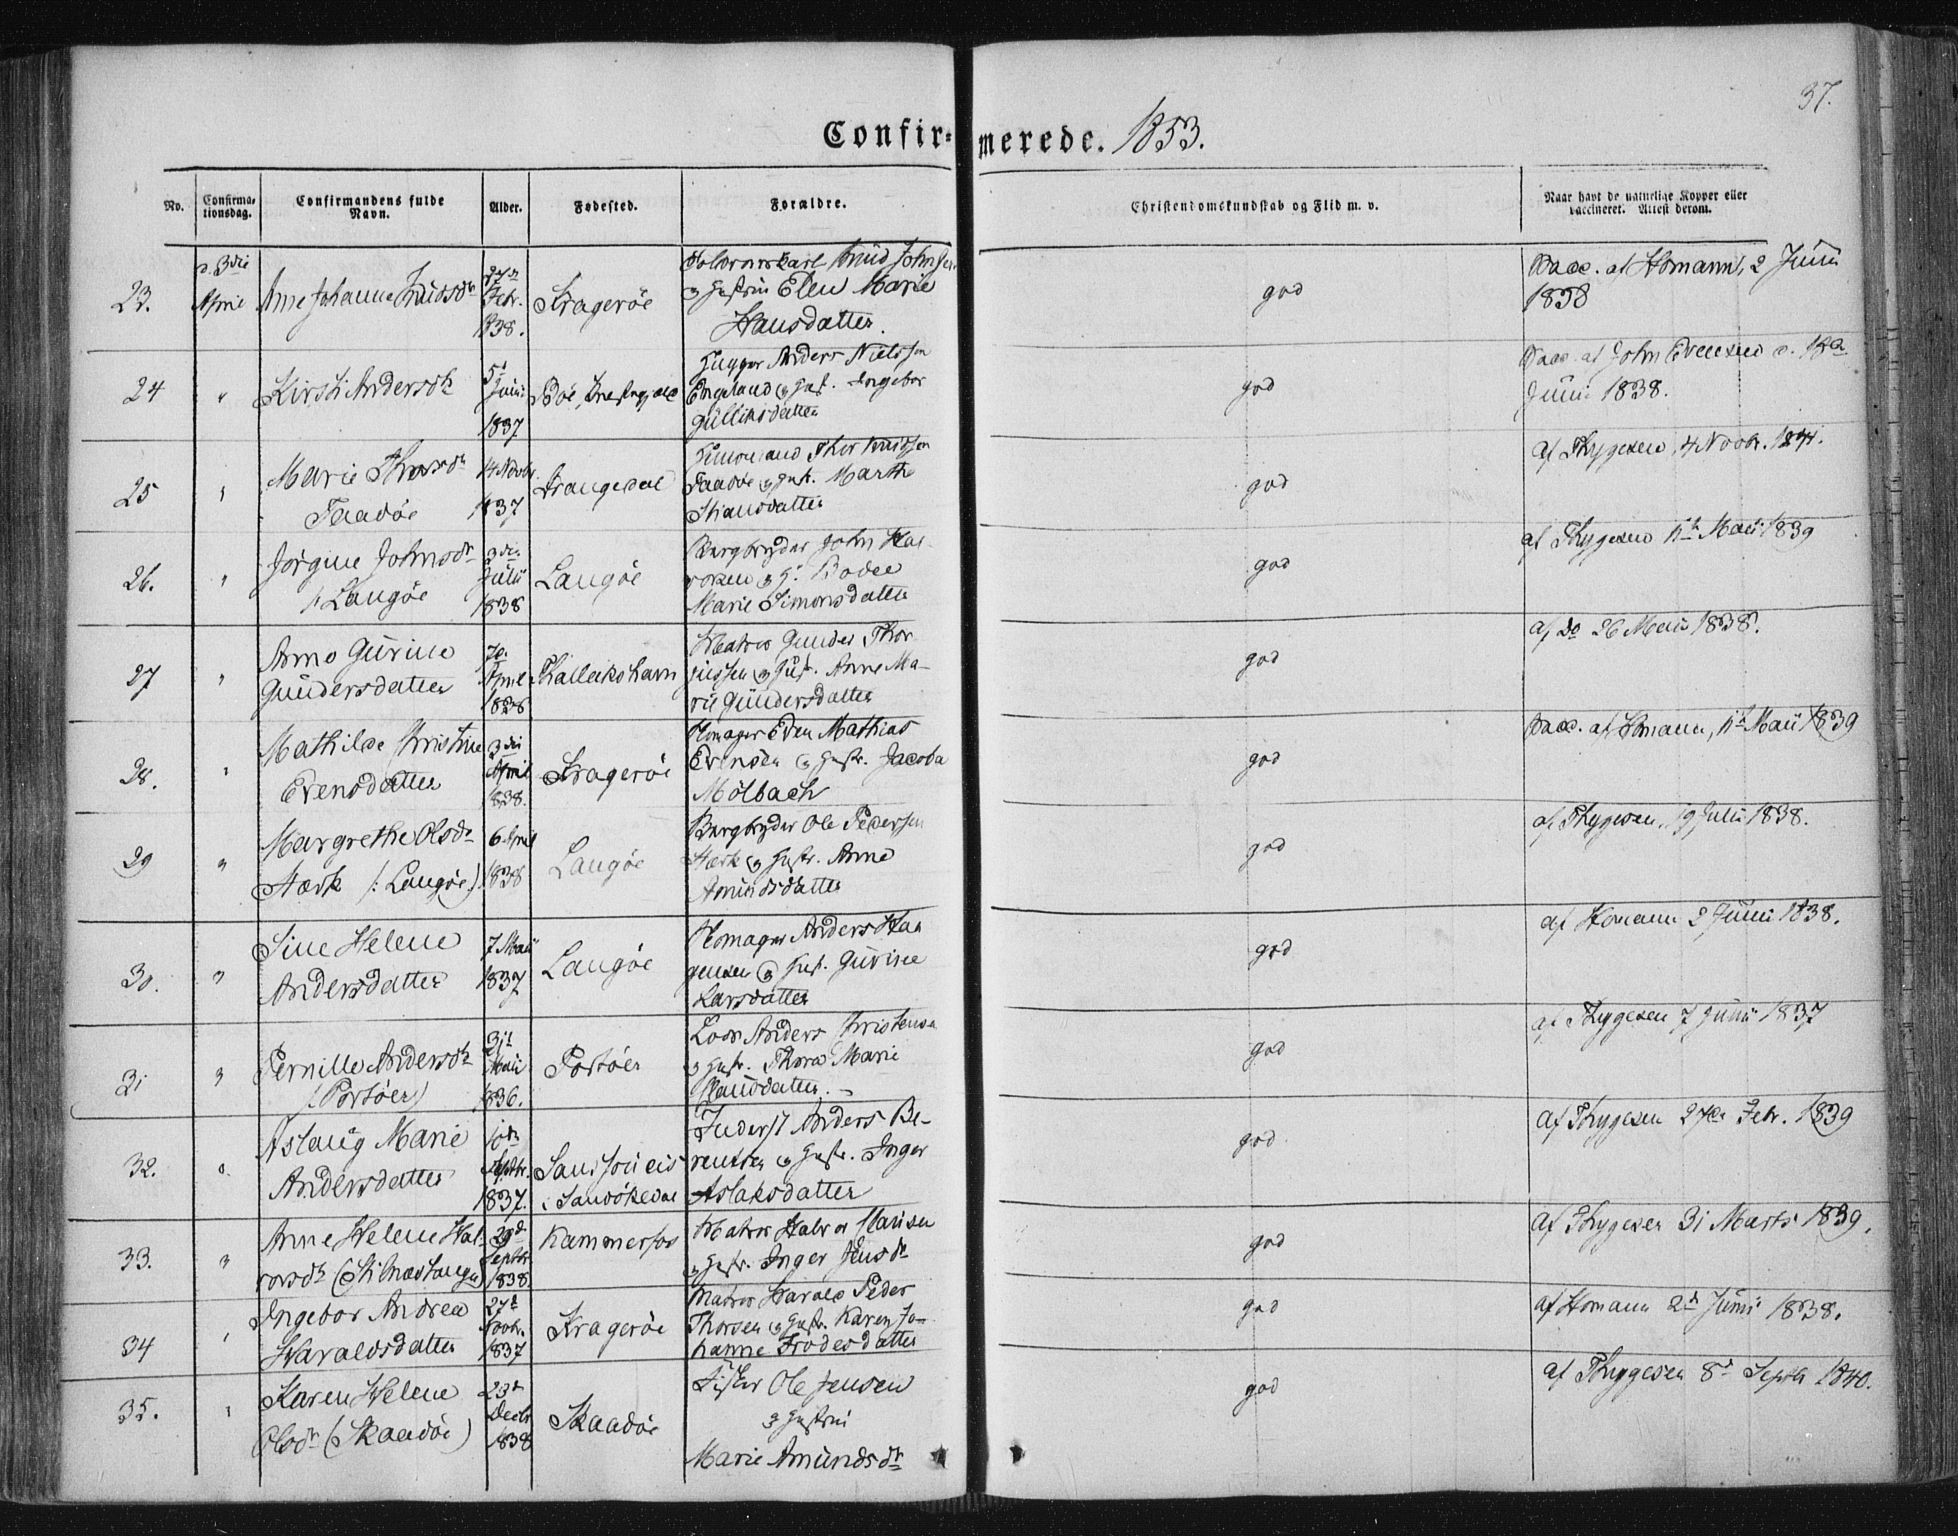 37.
Confirmerede. 1853.
No.
Confirmationsdag.
Confirmandens fulde Navn.
Alder.
Fødested.
Forældre.
Christendomskundskab og Flid m. v.
Naar havt de naturlige Kopper eller vaccineret. Attest derom.
23.
d. 3die April
Ane Johanne Knudsdr
27de Febr. 1838.
Kragerøe
Knud Johnsen
& Hustrue Elen Marie
Hansdatter.
god
Vacc. af Homann, 2 Junii
1838
24
"
Kirsti Andersdr
5t Junii 1837
Bøe, Præstegjæld
Anders Nielssen
Engeland & Hust. Ingebor
Gulliksdatter
god
Vacc. af John Evensen d. 18de
Junii 1838.
25
"
Marie Thorsdr
Taadøe
14 Novbr 1837
Drangedal
Thor Knudssen
Taadøe & Hust. Marthe
Stiansdatter
god
af Thygesen 4 Novbr. 1841.
26.
"
Jørgine Johnsdr
/: Langøe
3die Julii 1838
Langøe
Bergbryder John Hal-
vorsen & H. Bodel
Marie Simonsdatter
god
af Thygesen 11te Maii 1839
27
"
Anne Gurine
Gundersdatter
7de April 1838
Thalleikshavn
Matros Gunder Thor
& Hust. Anne Ma-
rie Gundersdatter
god
af do 26 Maii 1838.
28.
"
Mathilde Christine
Evensdatter
3die April 1838.
Kragerøe
Even Mathias
Evensen & Hustr. Jacoba
Mølbach
god
Vacc. af Homann, 11te Maii 1839
29
"
Margrethe Olsdr
Stærk (: Langøe)
6 April 1838
Langøe
Bergbryder Ole Pedersen
Stærk & Hustr. Anne
Amundsdatter
god
af Thygesen, 19 Julii 1838.
30.
"
Sine Helene
Andersdatter
7 Maii 1837
Langøe
Anders Haa
gensen & Hust. Gurine
Larsdatter
god
af Homann 2 Junii 1838.
31
"
Pernille Andersdr
(: Portøer)
31t Maii 1836.
Portøer
Lods Anders Christensen
& Hustr. Thora Marie
Hansdatter. -
god
af Thygesen 7 Junii 1837
32.
"
Aslaug Marie
Andersdatter
10de Septbr. 1837.
i Sandøkedal
Inderst Anders Be-
rentsen & Hustr. Inger
Aslaksdatter
god
af Thygesen 27de Febr. 1839
33.
"
Anne Helene Hal-
vorsdr
29de Septbr 1838.
Kammerfos
Matros Halvor Hansen
& Hustr. Inger Jensdr
god
af Thygesen 31 Marts 1839.
34
"
Ingebor Andrea
Haraldsdatter
27de Novbr. 1837
Kragerøe
Matros Harald Peder
Thorsen & Hustr. Karen Jo-
hanne Frodesdatter
god
af Homann 2d Junii 1838.
35.
"
Karen Helene
Olsdr (: Skaadøe)
23de Decbr 1838
Skaadøe
Fisker Ole Jensen
& Hustrue
Marie Amundsdr
god
af Thygesen 8d Septbr 1840.